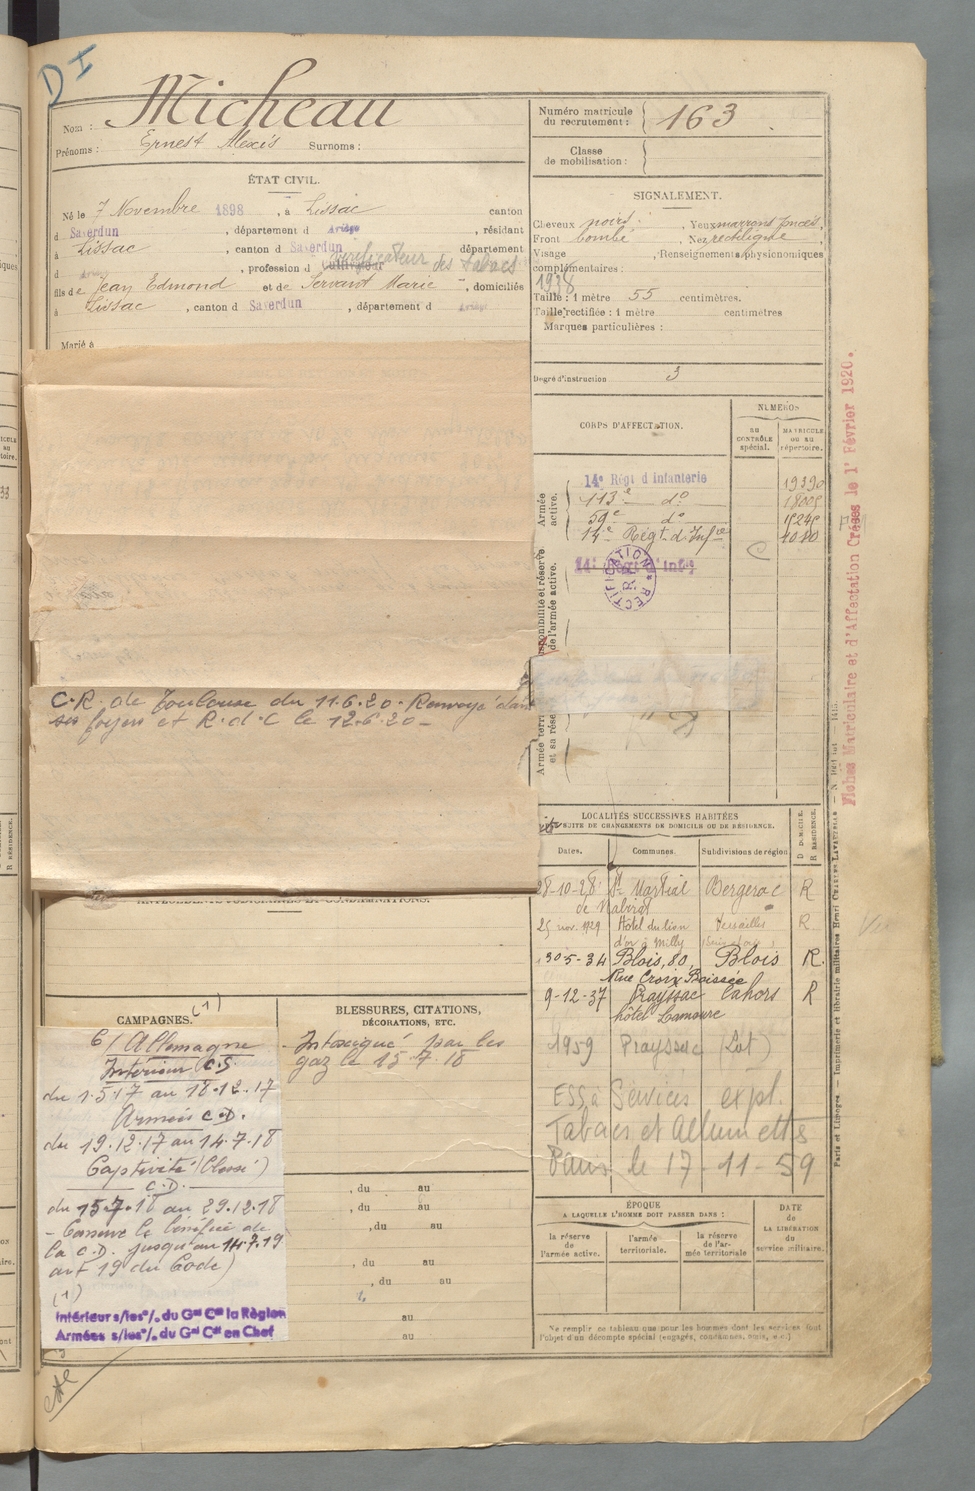 D I
Nom : Micheau
Prénoms : Ernest Alexis Surnoms :
ÉTAT CIVIL.
Né le 7 Novembre 1898 , à Lissac canton
d Saverdun , département d Ariège , résidant
à Lissac , canton d Saverdun département
d , profession d cultivateur vérificateur des Tabacs
fils de Jean Edmond et de Servant Marie , domiciliés
à Lissac , canton d Saverdun , département d Ariège
Marié à
C.R. de Toulouse du 11.6.20. Renvoyé dans
ses foyers et R.d.C le 12.6.20 -
ANTÉCÉDENTS JUDICIAIRES ET CONDAMNATIONS.
CAMPAGNES. (1)
C/ Allemagne
Intérieur C.S
du 1.5.17 au 18.12.17
Armées C.D.
du 19.12.17 au 14.7.18
Captivité (blessé)
C.D.
du 15.7.18 au 29.12.18
- Conserve le bénéfice de
la C.D. jusqu'au 14.7.19
art 19 du Code)
(1)
Intérieur s/les °/. du Gal Ct la Région
Armées s/les °/. du Gal Ct en Chef
BLESSURES, CITATIONS,
DÉCORATIONS, ETC.
- Intoxiqué par les
gaz le 15.7.18
, du au
, du au
, du au
, du au
, du au
au
au
Numéro matricule
du recrutement : 163
Classe
de mobilisation :
SIGNALEMENT.
Cheveux noirs . Yeux marrons foncés,
Front bombé , Nez rectiligne ,
Visage , Renseignements physionomiques
complémentaires :
1938
Taille : 1 mètre 55 centimètres.
Taille rectifiée : 1 mètre centimètres
Marques particulières :
Degré d'instruction 3
CORPS D'AFFECTATION.
NUMÉROS
au
contrôle
spécial.
MATRICULE
ou au
répertoire.
Armée
active.
14e Régt d'Infanterie 19390
113e do 18005
59e do
14e Régt. d'Infie
14e Régt d'Infie
RECTIFICATION
Disponibilité et réserve
de l'armée active.
Armée terri
et sa rése
LOCALITÉS SUCCESSIVES HABITÉES
SUITE DE CHANGEMENTS DE DOMICILE OU DE RÉSIDENCE.
Dates. Communes. Subdivisions de région D DOMICILE. R RÉSIDENCE.
28-10-28 St Martial Bergerac R
de Nabirat
25 nov. 1929 Hôtel du lion Versailles R.
d'or à Milly
30-5-34 Blois, 80, Blois R.
Rue Croix Boissée
9-12-37 Prayssac Cahors R
hôtel Lamoure
1959 Prayssac (Lot)
ESSA Services expl.
Tabacs et Allumettes
Paris le 17-11-59
ÉPOQUE
A LAQUELLE L'HOMME DOIT PASSER DANS :
la réserve
de
l'armée active.
l'armée
territoriale.
la réserve
de l'ar-
mée territoriale
DATE
de
LA LIBÉRATION
du
service militaire.
Ne remplir ce tableau que pour les hommes dont les services font
l'objet d'un décompte spécial (engagés, condamnés, omis, etc.)
Fiches Matriculaire et d'Affectation Créées le 1er Février 1920.
Paris et Limoges. — Imprimerie et librairie militaires Henri CHARLES-LAVAUZELLE.